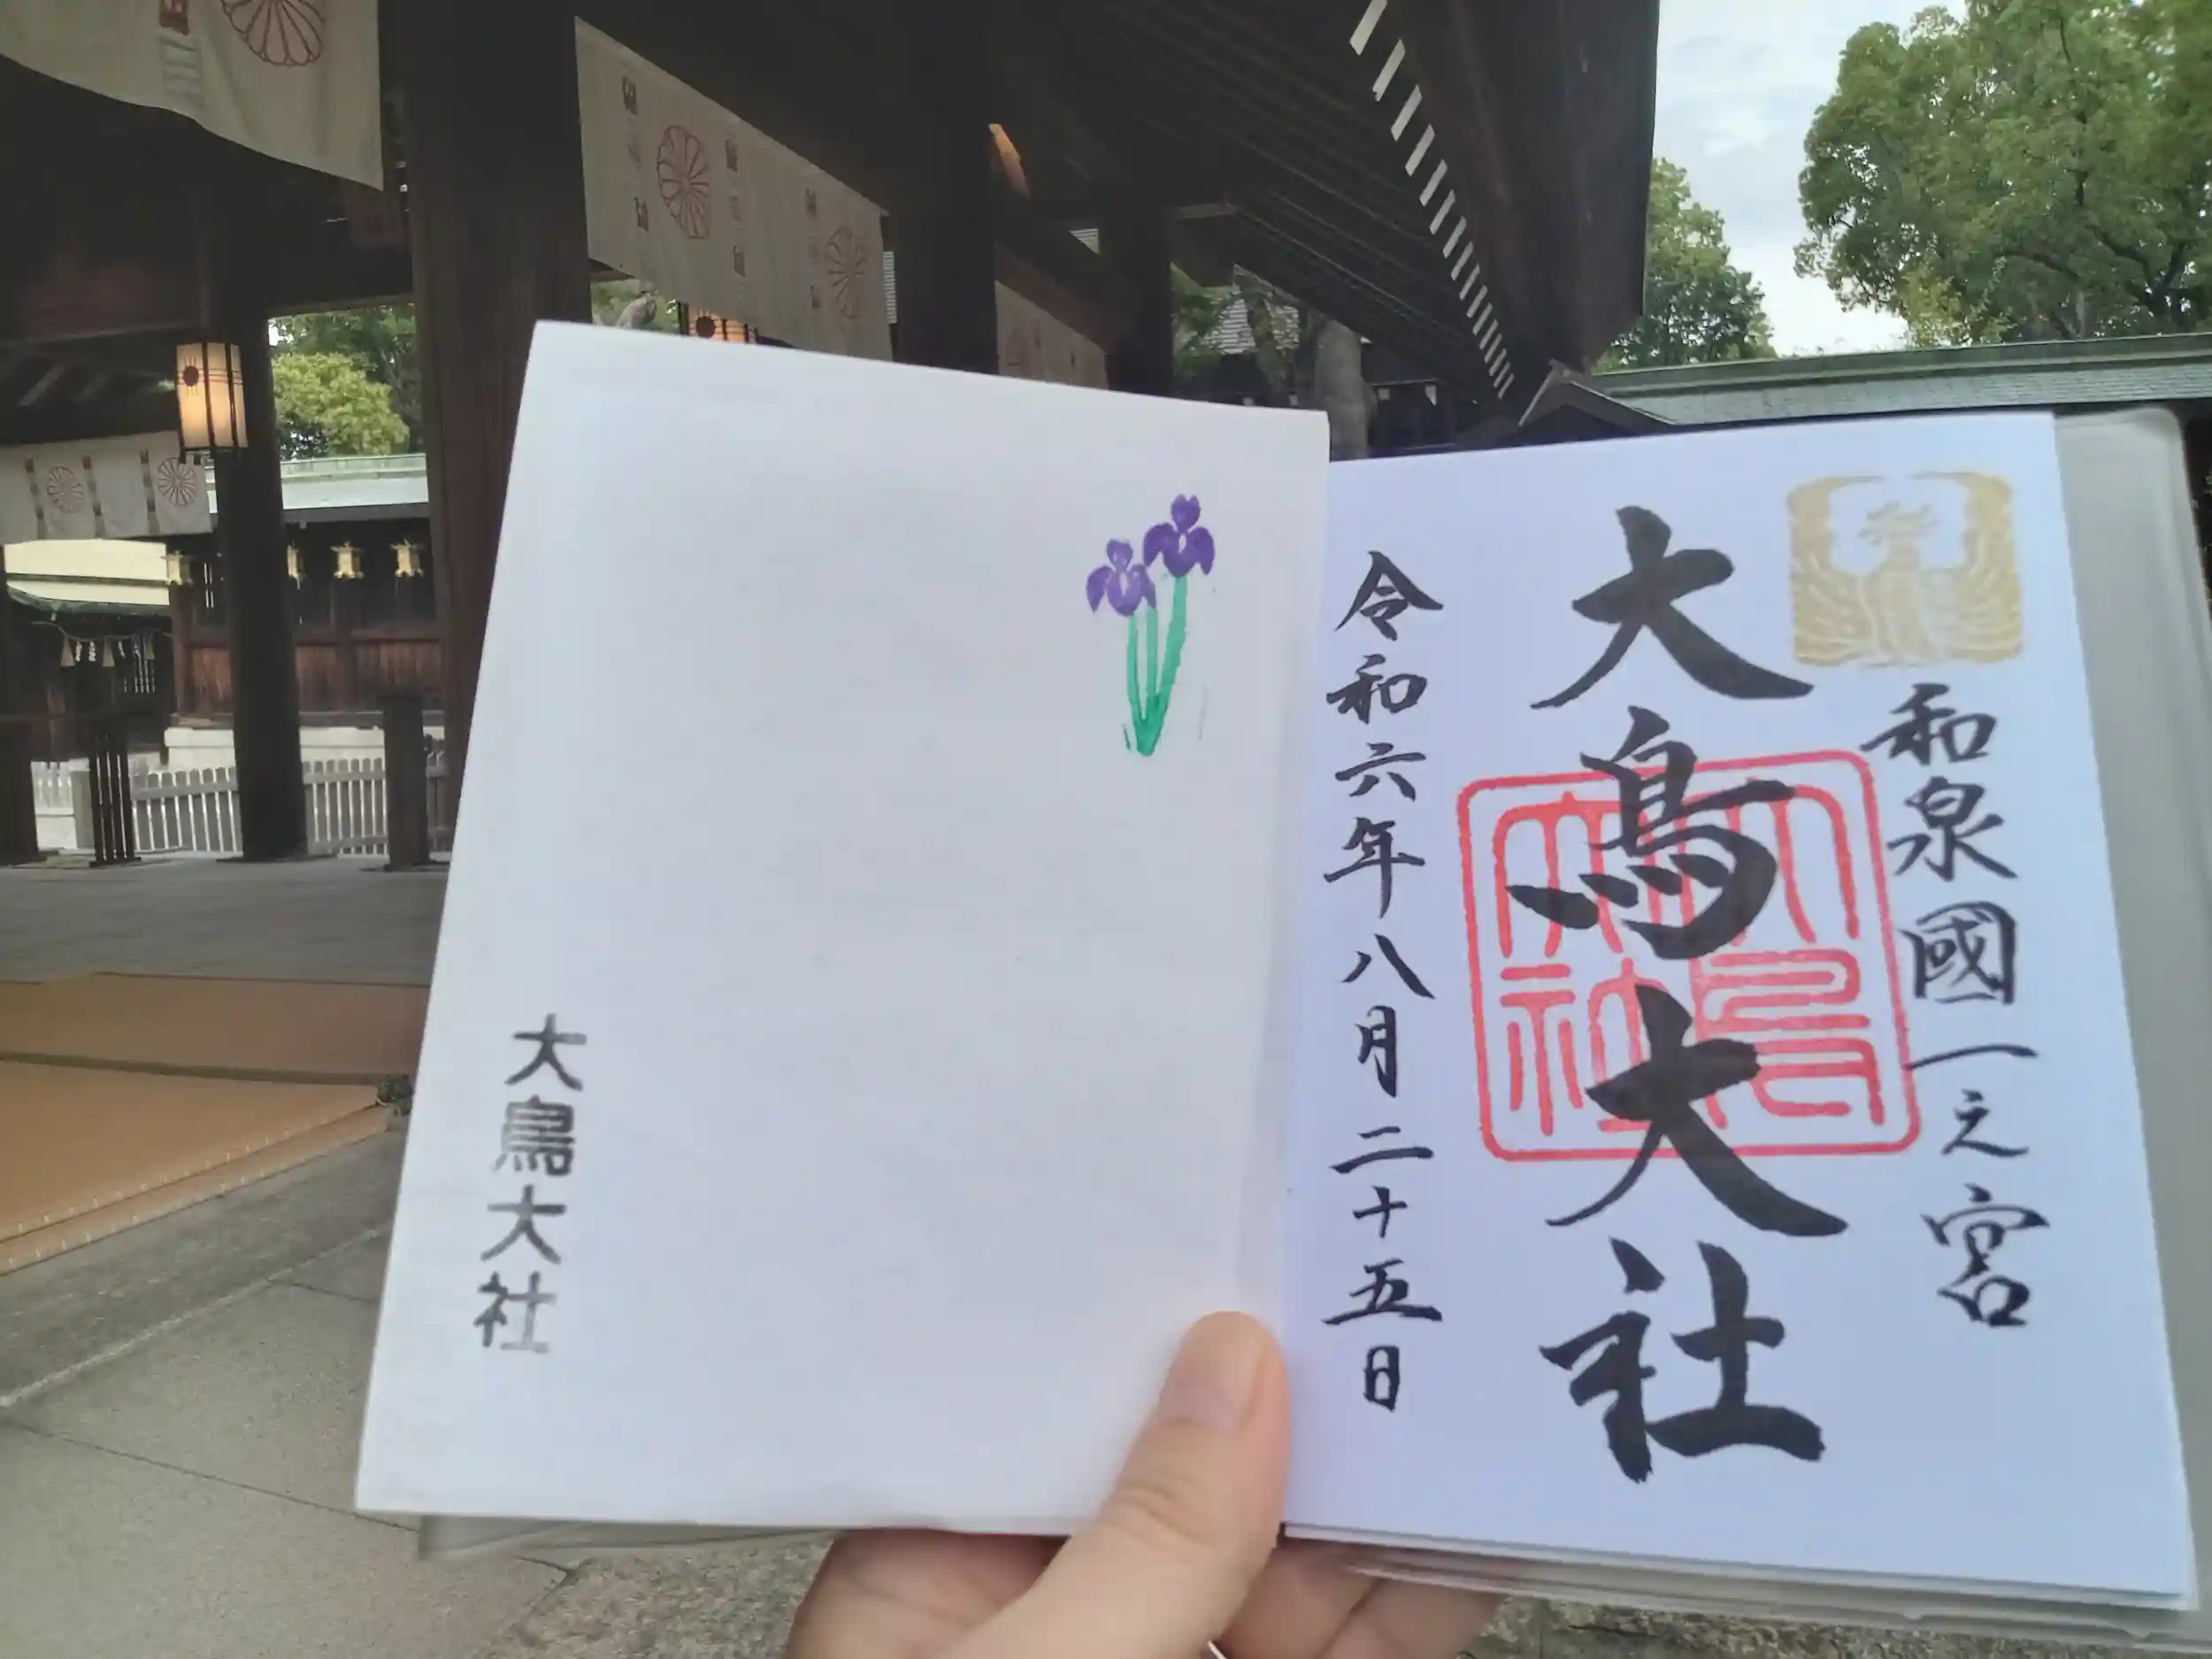 和泉國一之宮
大鳥大社
令和六年八月二十五日
大鳥大社
大鳥大社